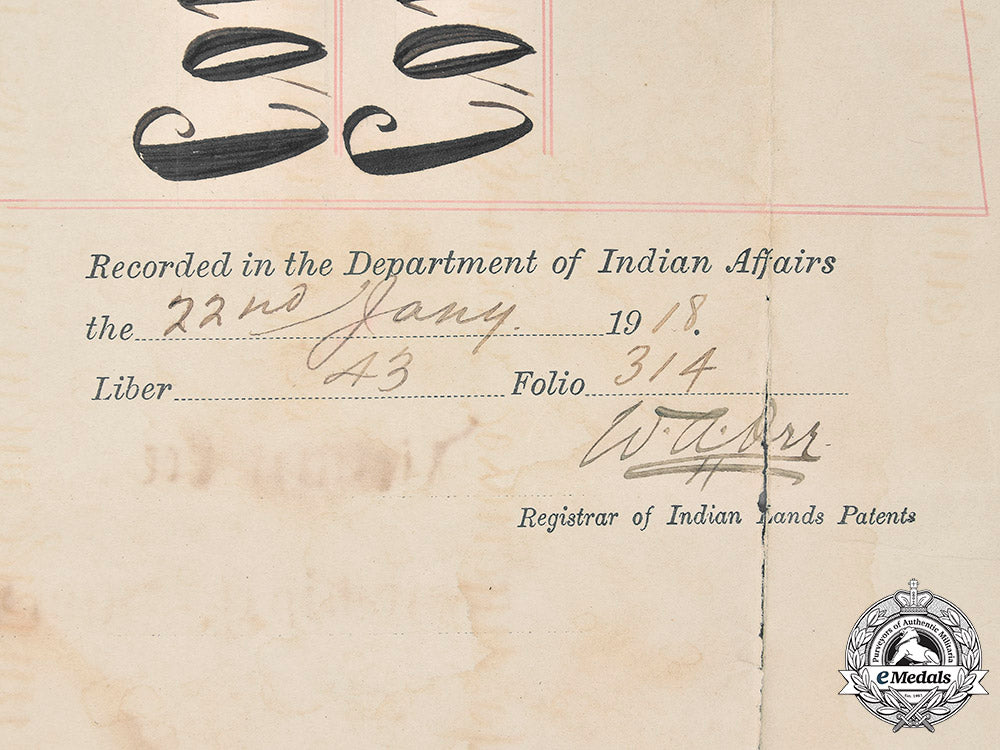 Co
Co
Recorded in the Department of Indian Affairs
the 22nd Jany. 1918.
Liber 43 Folio 314
W.A. Orr.
Registrar of Indian Lands Patents
Purveyors of Authentic Militaria
eMedals